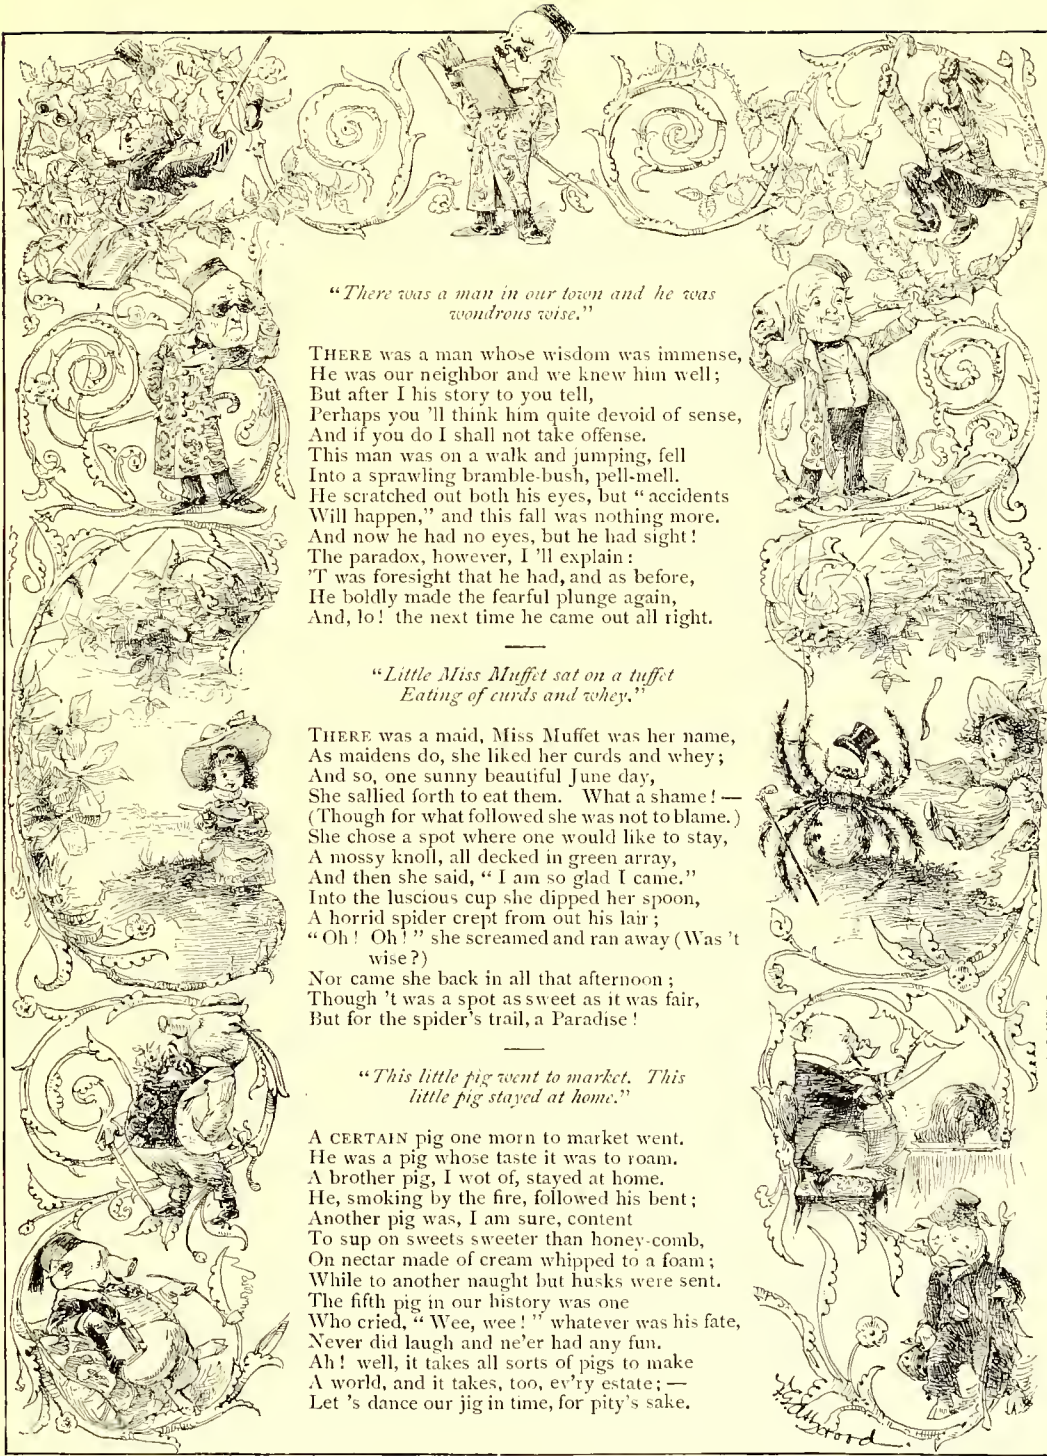 "There was a man in our town and he was
wondrous wise."
THERE was a man whose wisdom was immense,
He was our neighbor and we knew him well;
But after I his story to you tell,
Perhaps you 'll think him quite devoid of sense,
And if you do I shall not take offense.
This man was on a walk and jumping, fell
Into a sprawling bramble-bush, pell-mell.
He scratched out both his eyes, but "accidents
Will happen," and this fall was nothing more.
And now he had no eyes, but he had sight!
The paradox, however, I 'll explain:
'T was foresight that he had, and as before,
He boldly made the fearful plunge again,
And, lo! the next time he came out all right.
"Little Miss Muffet sat on a tuffet
Eating of curds and whey."
THERE was a maid, Miss Muffet was her name,
As maidens do, she liked her curds and whey;
And so, one sunny beautiful June day,
She sallied forth to eat them. What a shame! —
(Though for what followed she was not to blame.)
She chose a spot where one would like to stay,
A mossy knoll, all decked in green array,
And then she said, "I am so glad I came."
Into the luscious cup she dipped her spoon,
A horrid spider crept from out his lair;
"Oh! Oh!" she screamed and ran away (Was 't
wise?)
Nor came she back in all that afternoon;
Though 't was a spot as sweet as it was fair,
But for the spider's trail, a Paradise!
"This little pig went to market. This
little pig stayed at home."
A CERTAIN pig one morn to market went.
He was a pig whose taste it was to roam.
A brother pig, I wot of, stayed at home.
He, smoking by the fire, followed his bent;
Another pig was, I am sure, content
To sup on sweets sweeter than honey-comb,
On nectar made of cream whipped to a foam;
While to another naught but husks were sent.
The fifth pig in our history was one
Who cried, "Wee, wee!" whatever was his fate,
Never did laugh and ne'er had any fun.
Ah! well, it takes all sorts of pigs to make
A world, and it takes, too, ev'ry estate; —
Let 's dance our jig in time, for pity's sake.